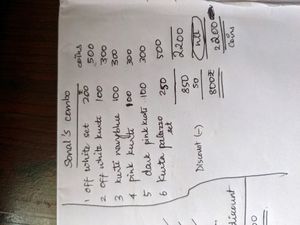 Sonal's combo
coins
1 off white set 200 500
2 off white kurta 100 300
3 kurti navy blue 100 300
4 pink kurti 100 300
5 dark pink kurti 100 300
6 Kurta palazzo set 250 500
850 2200
Discount (-) 50 nil
800 2200 coins
discount